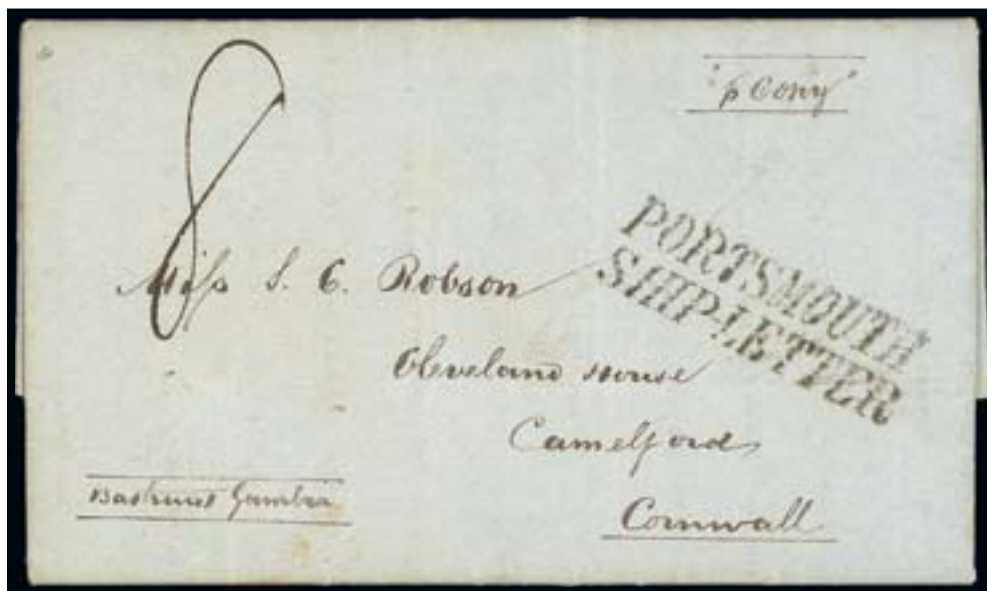 8
"p Cosy"
PORTSMOUTH
SHIP-LETTER
Miss S. C. Robson
Cleveland House
Camelford
Cornwall
Bathurst Gambia